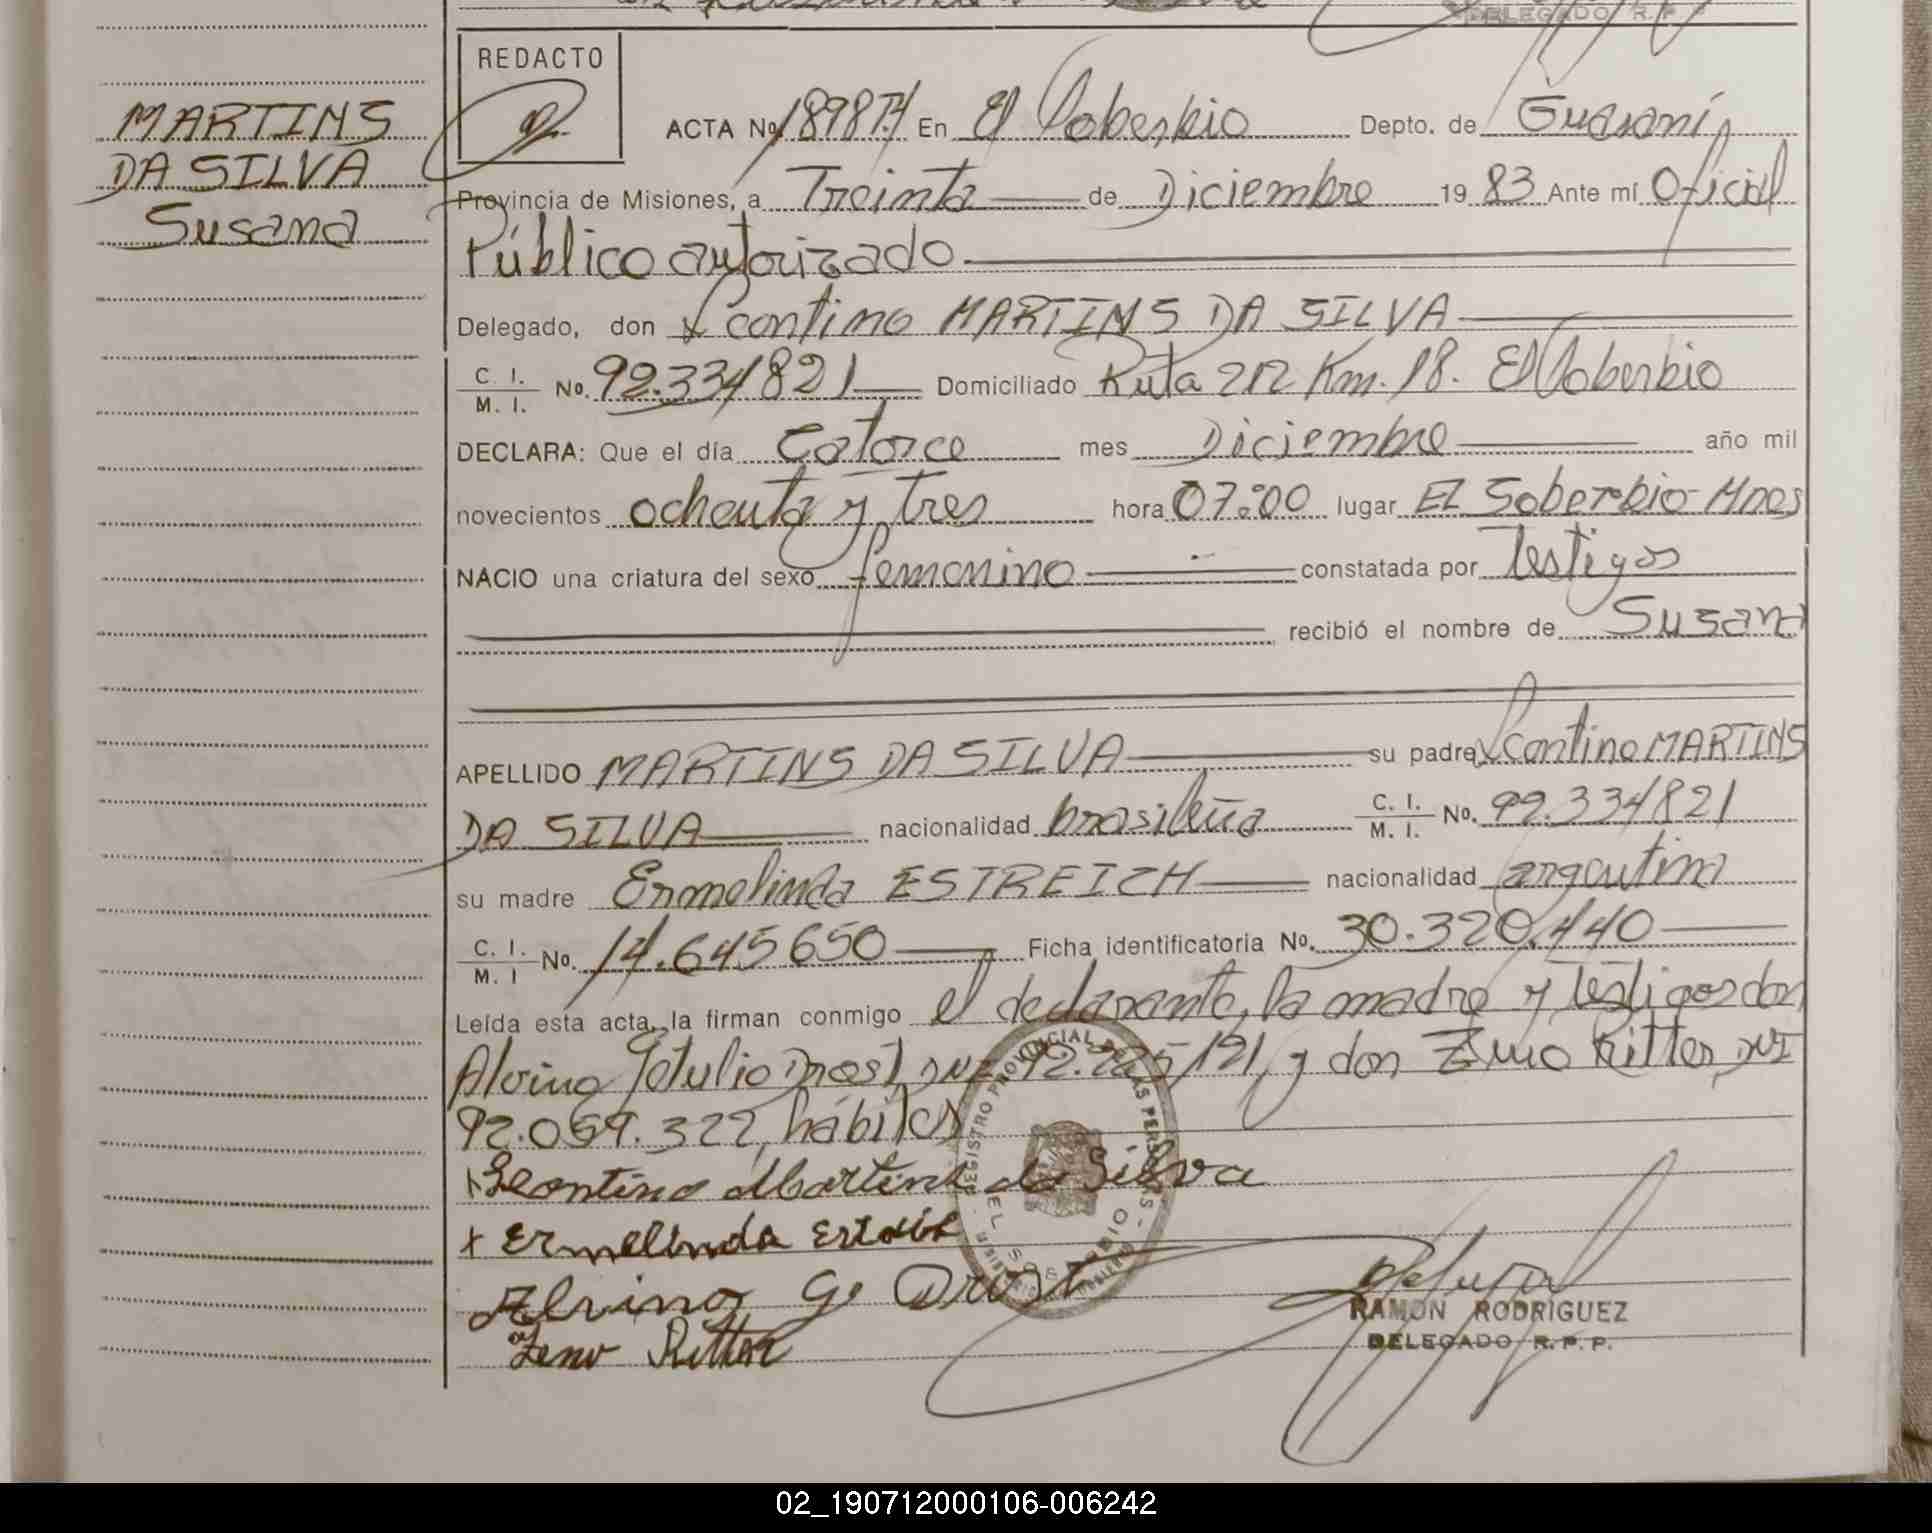 DELEGADO R. P. P.
REDACTO
MARTINS
DA SILVA
Susana
ACTA No. 1898 T4 En El Soberbio Depto. de Guaraní
Provincia de Misiones, a Treinta de Diciembre 19 83 Ante mí Oficial
Público autorizado
Delegado, don x Leontino MARTINS DA SILVA
C. I. M. I. No. 92.334821 Domiciliado Ruta 212 Km. 18. El Soberbio
DECLARA: Que el día Catorce mes Diciembre año mil
novecientos ochenta y tres hora 07:00 lugar El Soberbio Mnes
NACIO una criatura del sexo femenino constatada por Testigos
recibió el nombre de Susana
APELLIDO MARTINS DA SILVA su padre Leontino MARTINS
DA SILVA nacionalidad brasileña C. I. M. I. No. 92.334821
su madre Ermelinda ESTREICH nacionalidad argentina
C. I. M. I No. 14.645650 Ficha identificatoria No. 30.320.440
Leída esta acta, la firman conmigo el declarante, la madre y testigos don
Alvino Getulio Drost DNI 92.225121 y don Zeno Ritter DNI
92.069.322, hábiles
x Leontino Martins da Silva
x Ermelinda
Alvino G. Drost
Zeno Ritter
REGISTRO PROVINCIAL DE LAS PERSONAS
EL SOBERBIO
RAMON RODRIGUEZ
DELEGADO R. P. P.
02_190712000106-006242